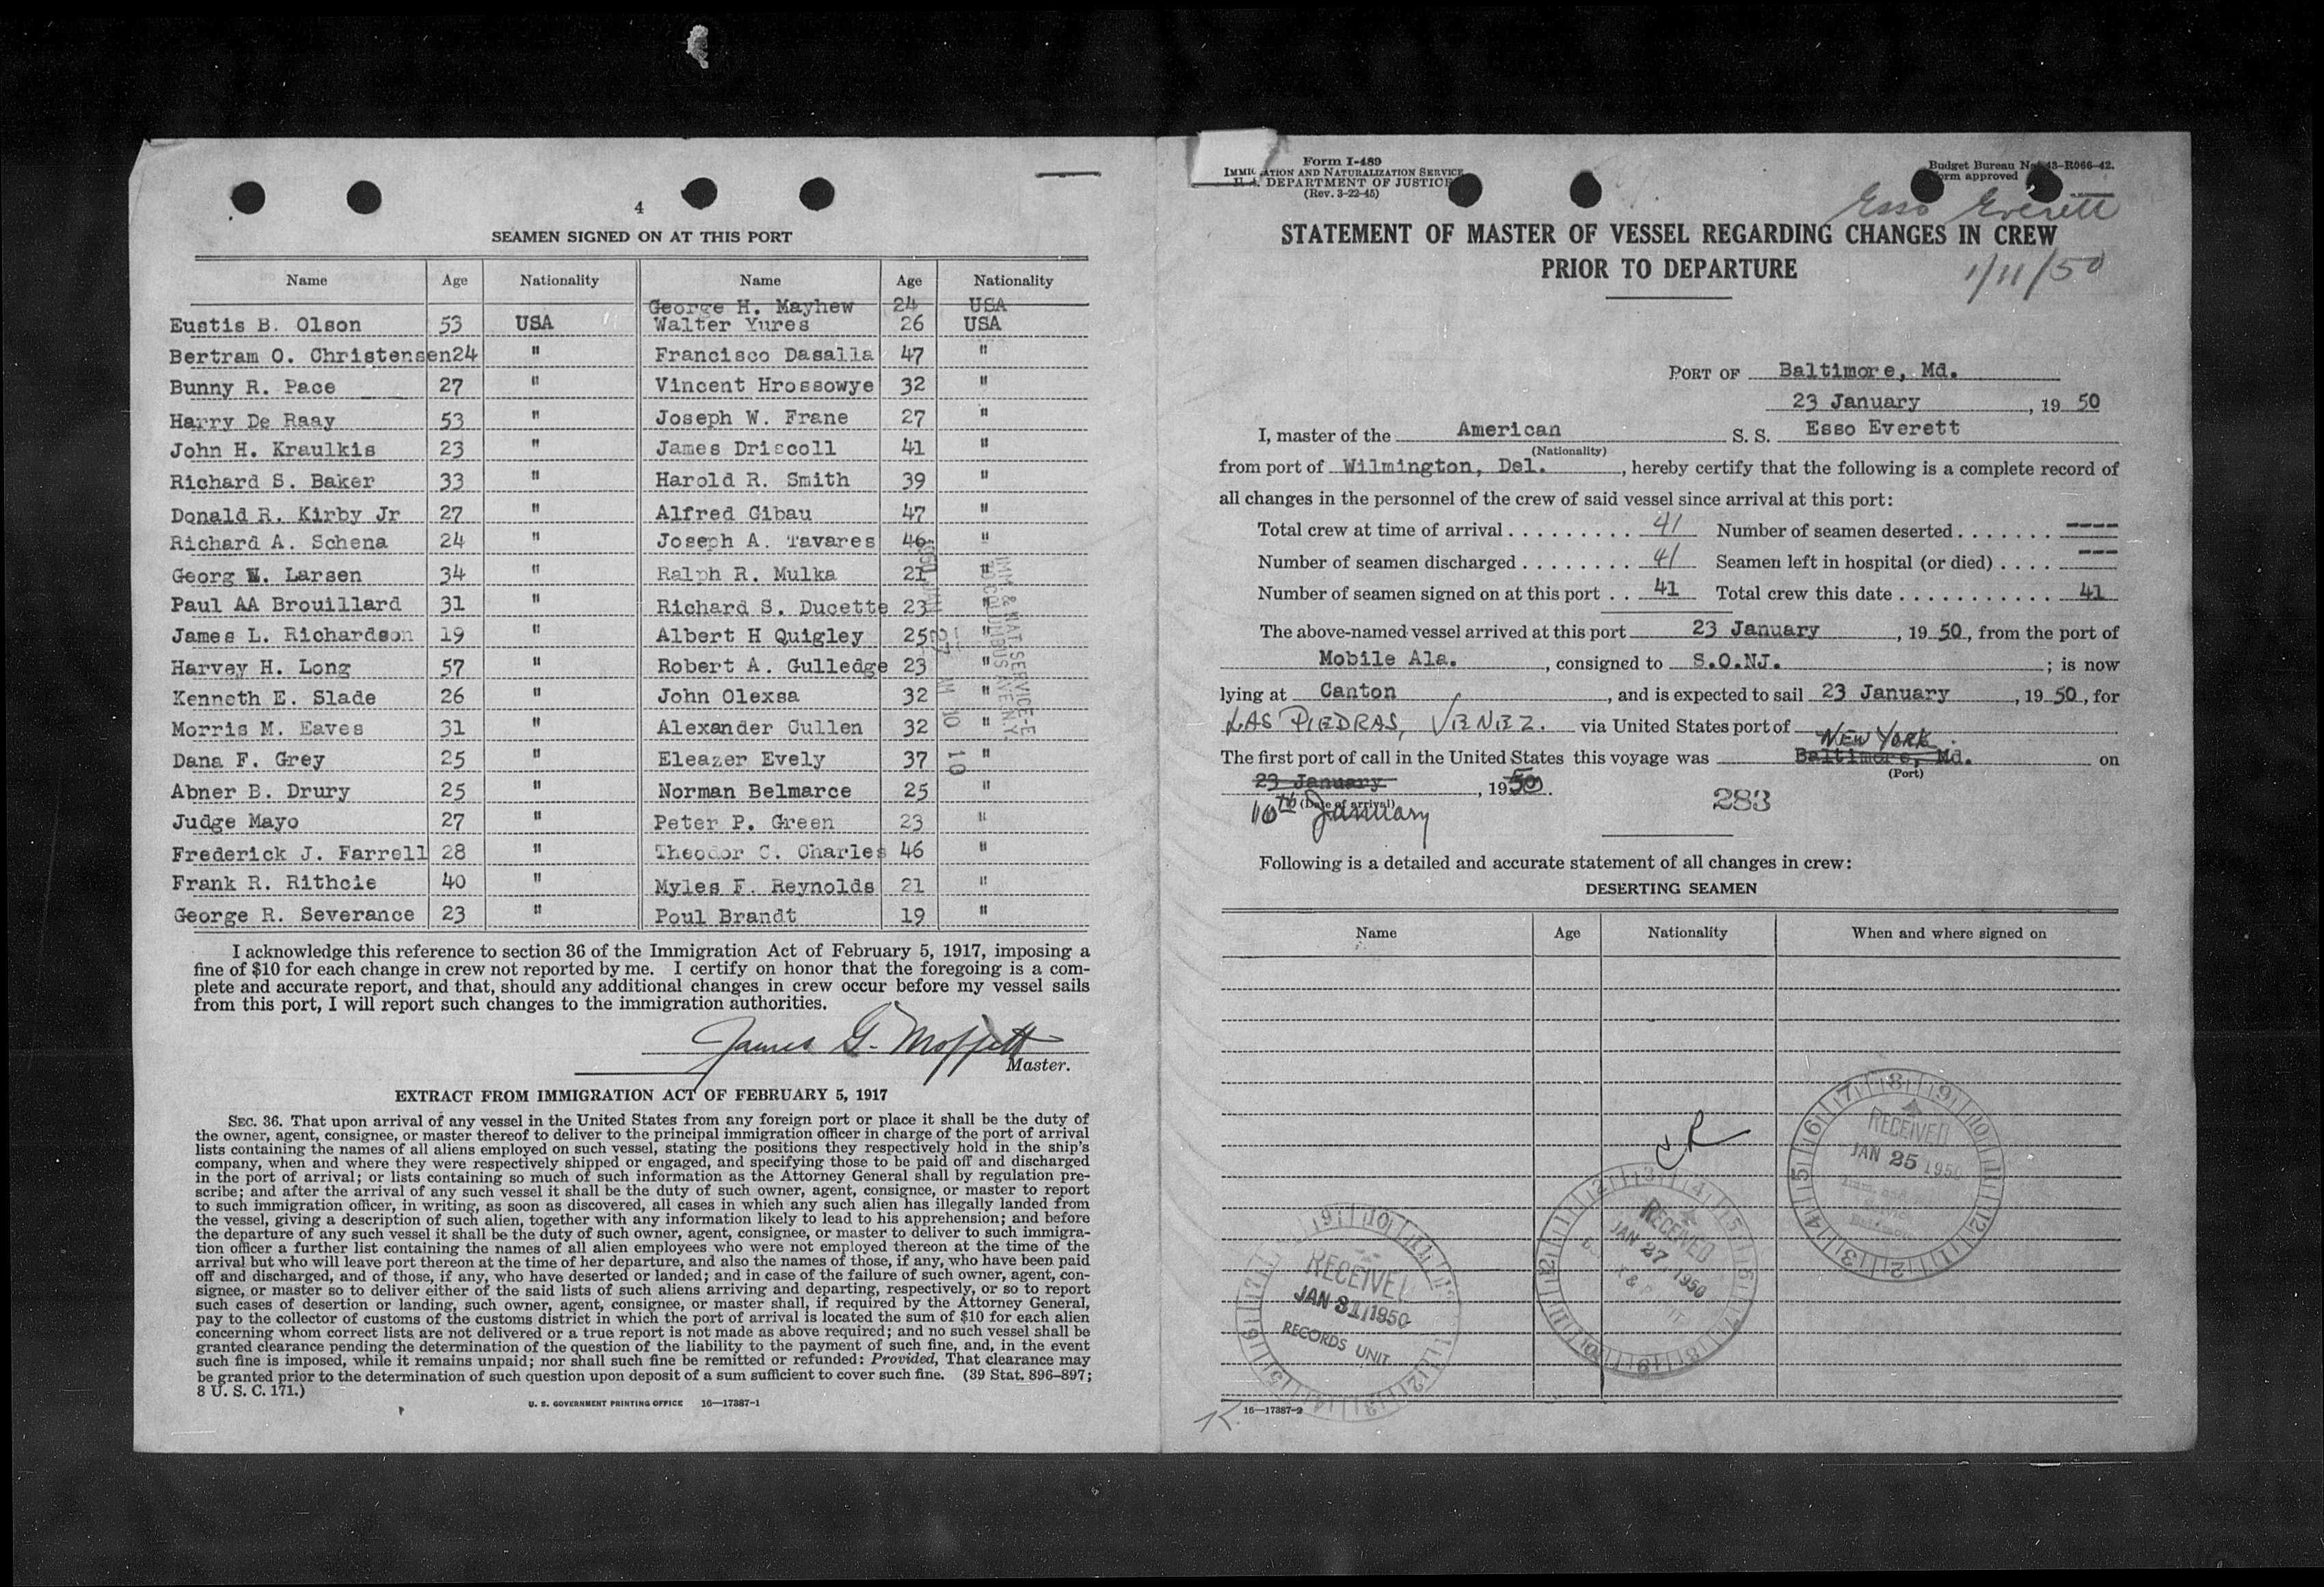 4
SEAMEN SIGNED ON AT THIS PORT
Name Age Nationality Name Age Nationality
George H. Mayhew 24 USA
Eustis B. Olson 53 USA Walter Yures 26 USA
Bertram O. Christensen 24 " Francisco Dasalla 47 "
Bunny R. Pace 27 " Vincent Hrossowye 32 "
Harry De Raay 53 " Joseph W. Frane 27 "
John H. Kraulkis 23 " James Driscoll 41 "
Richard S. Baker 33 " Harold R. Smith 39 "
Donald R. Kirby Jr 27 " Alfred Gibau 47 "
Richard A. Schena 24 " Joseph A. Tavares 46 "
Georg W. Larsen 34 " Ralph R. Mulka 21 "
Paul AA Brouillard 31 " Richard S. Ducette 23 "
James L. Richardson 19 " Albert H Quigley 25 "
Harvey H. Long 57 " Robert A. Gulledge 23 "
Kenneth E. Slade 26 " John Olexsa 32 "
Morris M. Eaves 31 " Alexander Cullen 32 "
Dana F. Grey 25 " Eleazer Evely 37 "
Abner B. Drury 25 " Norman Belmarce 25 "
Judge Mayo 27 " Peter P. Green 23 "
Frederick J. Farrell 28 " Theodor C. Charles 46 "
Frank R. Rithcie 40 " Myles F. Reynolds 21 "
George R. Severance 23 " Poul Brandt 19 "
IMM & NAT SERVICE-E
COLUMBUS AVE N.Y.
1950 JAN 27 AM 10 10
I acknowledge this reference to section 36 of the Immigration Act of February 5, 1917, imposing a
fine of $10 for each change in crew not reported by me. I certify on honor that the foregoing is a com-
plete and accurate report, and that, should any additional changes in crew occur before my vessel sails
from this port, I will report such changes to the immigration authorities.
James G. Moffett
Master.
EXTRACT FROM IMMIGRATION ACT OF FEBRUARY 5, 1917
SEC. 36. That upon arrival of any vessel in the United States from any foreign port or place it shall be the duty of
the owner, agent, consignee, or master thereof to deliver to the principal immigration officer in charge of the port of arrival
lists containing the names of all aliens employed on such vessel, stating the positions they respectively hold in the ship's
company, when and where they were respectively shipped or engaged, and specifying those to be paid off and discharged
in the port of arrival; or lists containing so much of such information as the Attorney General shall by regulation pre-
scribe; and after the arrival of any such vessel it shall be the duty of such owner, agent, consignee, or master to report
to such immigration officer, in writing, as soon as discovered, all cases in which any such alien has illegally landed from
the vessel, giving a description of such alien, together with any information likely to lead to his apprehension; and before
the departure of any such vessel it shall be the duty of such owner, agent, consignee, or master to deliver to such immigra-
tion officer a further list containing the names of all alien employees who were not employed thereon at the time of the
arrival but who will leave port thereon at the time of her departure, and also the names of those, if any, who have been paid
off and discharged, and of those, if any, who have deserted or landed; and in case of the failure of such owner, agent, con-
signee, or master so to deliver either of the said lists of such aliens arriving and departing, respectively, or so to report
such cases of desertion or landing, such owner, agent, consignee, or master shall, if required by the Attorney General,
pay to the collector of customs of the customs district in which the port of arrival is located the sum of $10 for each alien
concerning whom correct lists are not delivered or a true report is not made as above required; and no such vessel shall be
granted clearance pending the determination of the question of the liability to the payment of such fine, and, in the event
such fine is imposed, while it remains unpaid; nor shall such fine be remitted or refunded: Provided, That clearance may
be granted prior to the determination of such question upon deposit of a sum sufficient to cover such fine. (39 Stat. 896–897;
8 U. S. C. 171.)
U. S. GOVERNMENT PRINTING OFFICE 16—17387-1
Form I-489
IMMIGRATION AND NATURALIZATION SERVICE
U. S. DEPARTMENT OF JUSTICE
(Rev. 3-22-45)
Budget Bureau No. 43-R066-42.
Form approved
Esso Everett
STATEMENT OF MASTER OF VESSEL REGARDING CHANGES IN CREW
PRIOR TO DEPARTURE
1/11/50
PORT OF Baltimore, Md.
23 January, 19 50
I, master of the American S. S. Esso Everett
(Nationality)
from port of Wilmington, Del., hereby certify that the following is a complete record of
all changes in the personnel of the crew of said vessel since arrival at this port:
Total crew at time of arrival 41 Number of seamen deserted ----
Number of seamen discharged 41 Seamen left in hospital (or died) ---
Number of seamen signed on at this port 41 Total crew this date 41
The above-named vessel arrived at this port 23 January, 19 50, from the port of
Mobile Ala., consigned to S.O.NJ.; is now
lying at Canton, and is expected to sail 23 January, 19 50, for
LAS PIEDRAS, VENEZ. via United States port of
NEW YORK
The first port of call in the United States this voyage was Baltimore, Md. on
(Port)
23 January, 1950.
(Date of arrival)
10th January
283
Following is a detailed and accurate statement of all changes in crew:
DESERTING SEAMEN
Name Age Nationality When and where signed on
CR
RECEIVED
JAN 25 1950
RECEIVED
JAN 27 1950
RECEIVED
JAN 31 1950
RECORDS UNIT
16—17387-2